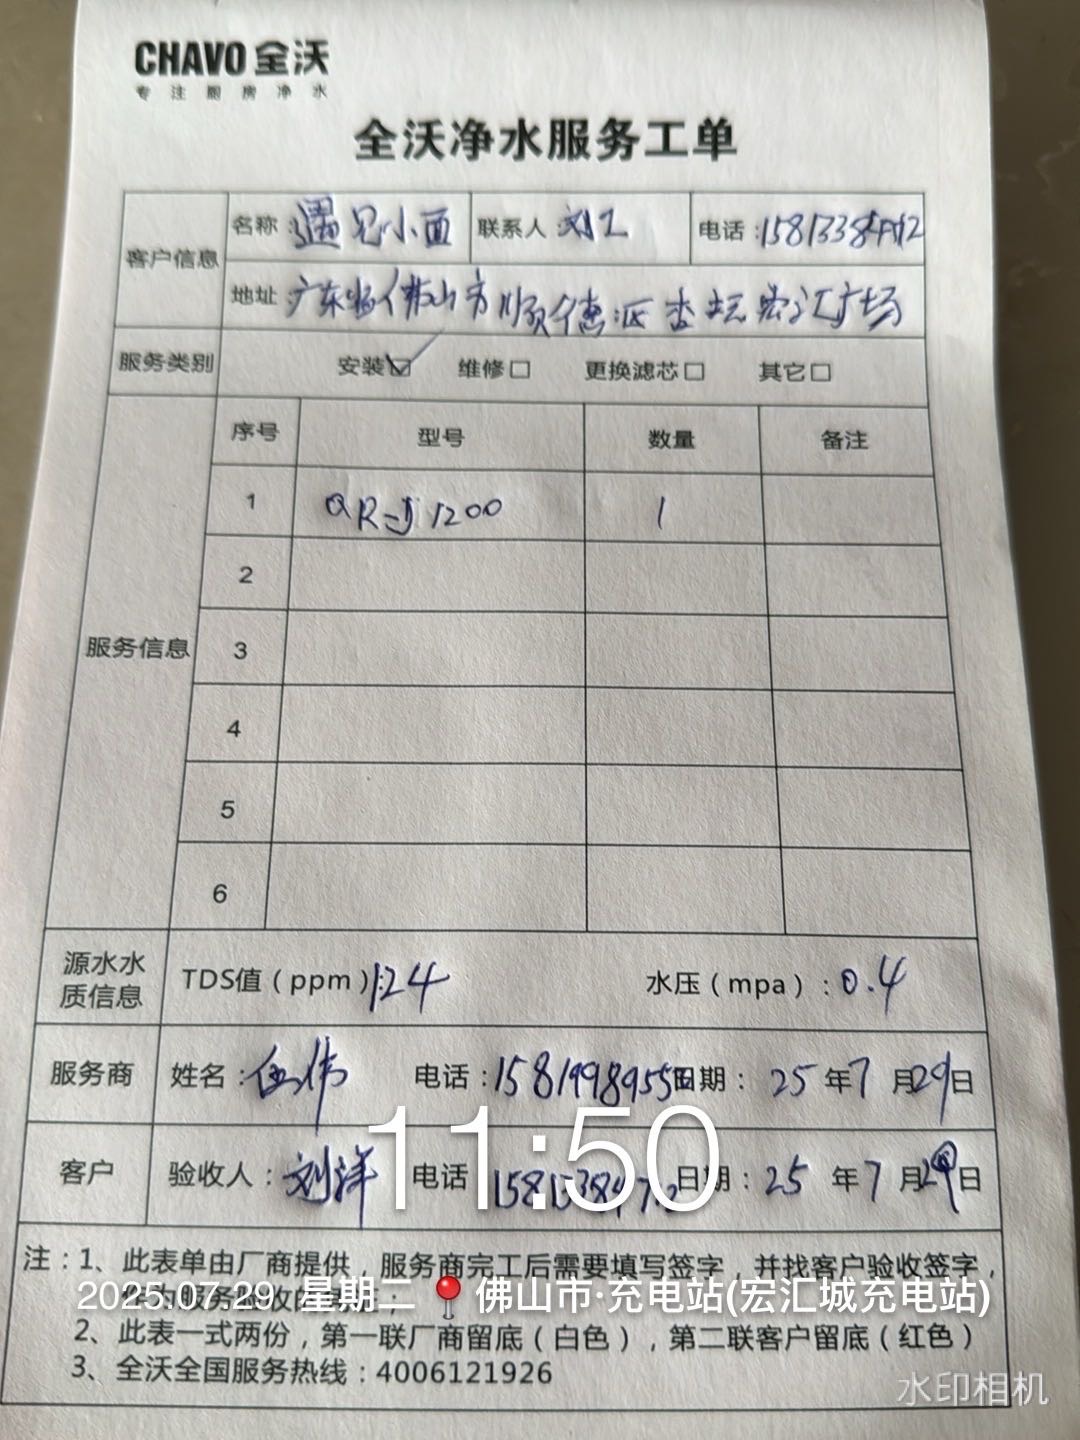 CHAVO 全沃
专注厨房净水
全沃净水服务工单
客户信息 名称：遇见小面 联系人 刘工 电话：
地址 广东省佛山市顺德区杏坛宏汇广场
服务类别 安装☑ 维修□ 更换滤芯□ 其它□
服务信息
序号 型号 数量 备注
1 QR-J1200 1
2
3
4
5
6
源水水质信息 TDS值（ppm）：124 水压（mpa）：0.4
服务商 姓名：伍伟 电话： 日期：25年7月29日
客户 验收人：刘洋 电话 日期：25年7月29日
11:50
注：1、此表单由厂商提供，服务商完工后需要填写签字，并找客户验收签字，
2025.07.29 星期二 佛山市·充电站(宏汇城充电站)
2、此表一式两份，第一联厂商留底（白色），第二联客户留底（红色）
3、全沃全国服务热线：4006121926
水印相机